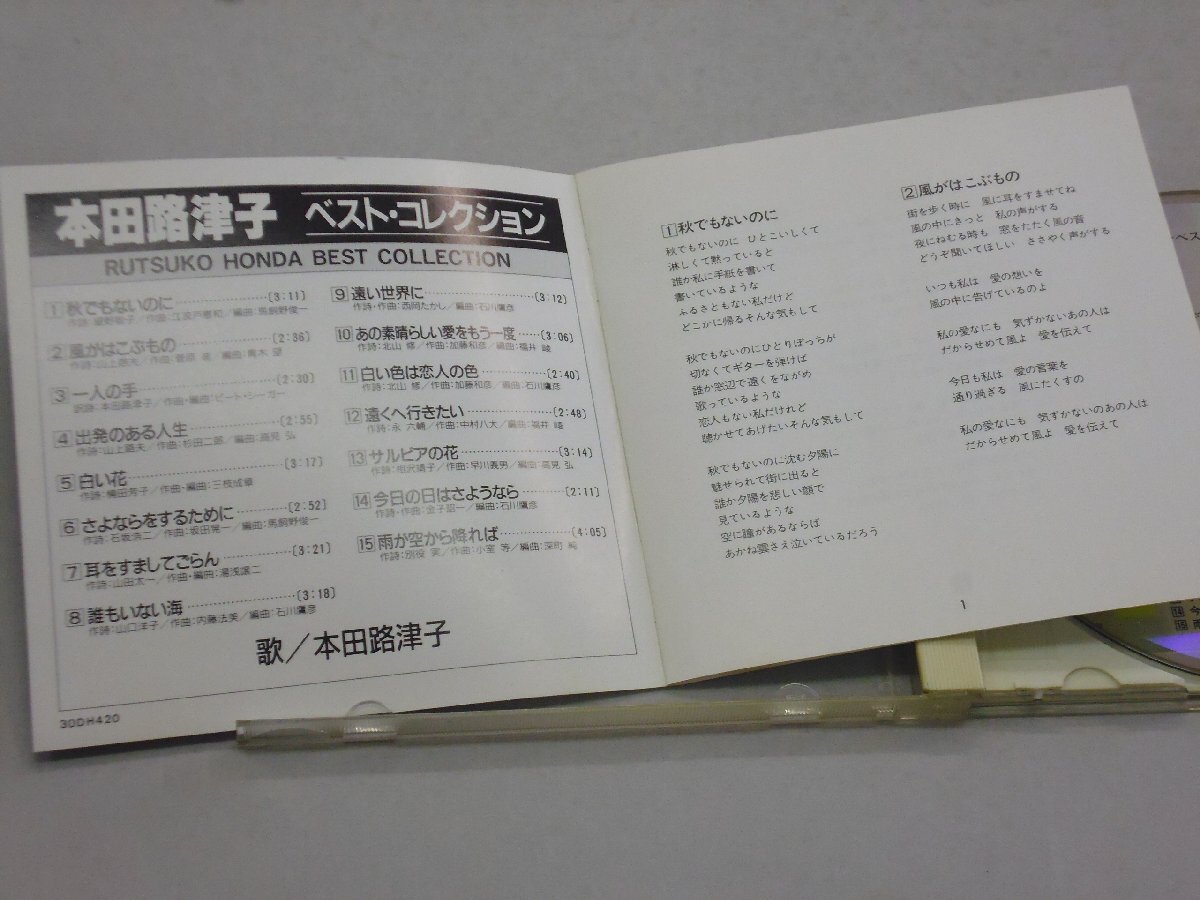 本田路津子 ベスト・コレクション
RUTSUKO HONDA BEST COLLECTION
1 秋でもないのに (3:11)
作曲:江波戸憲和/編曲:馬飼野俊一
2 風がはこぶもの (2:36)
作詩:山上路夫/作曲:菅原 進/編曲:青木 望
3 一人の手 (2:30)
訳詩:本田路津子/作曲・編曲:ピート・シーガー
4 出発のある人生 (2:55)
作詩:山上路夫/作曲:杉田二郎/編曲:高見 弘
5 白い花 (3:17)
作曲・編曲:三枝成章
6 さよならをするために (2:52)
作詩:石坂浩二/作曲:坂田晃一/編曲:馬飼野俊一
7 耳をすましてごらん (3:21)
作詩:山田太一/作曲・編曲:湯浅譲二
8 誰もいない海 (3:18)
作詩:山口洋子/作曲:内藤法美/編曲:石川鷹彦
9 遠い世界に (3:12)
作詩・作曲:西岡たかし/編曲:石川鷹彦
10 あの素晴らしい愛をもう一度 (3:06)
作詩:北山 修/作曲:加藤和彦/編曲:福井 崚
11 白い色は恋人の色 (2:40)
作詩:北山 修/作曲:加藤和彦/編曲:石川鷹彦
12 遠くへ行きたい (2:48)
作詩:永 六輔/作曲:中村八大/編曲:福井 崚
13 サルビアの花 (3:14)
作詩:相沢靖子/作曲:早川義男/編曲:高見 弘
14 今日の日はさようなら (2:11)
作詩・作曲:金子詔一/編曲:石川鷹彦
15 雨が空から降れば (4:05)
作詩:別役 実/作曲:小室 等/編曲:深町 純
歌/本田路津子
30DH420
1 秋でもないのに
秋でもないのに ひとこいしくて
淋しくて黙っていると
誰か私に手紙を書いて
書いているような
ふるさともない私だけど
どこかに帰るそんな気もして
秋でもないのにひとりぼっちが
切なくてギターを弾けば
誰か窓辺で遠くをながめ
歌っているような
恋人もない私だけれど
聴かせてあげたいそんな気もして
秋でもないのに沈む夕陽に
魅せられて街に出ると
誰か夕陽を悲しい顔で
見ているような
空に瞳があるならば
あかね雲さえ泣いているだろう
2 風がはこぶもの
街を歩く時に 風に耳をすませてね
風の中にきっと 私の声がする
夜にねむる時も 窓をたたく風の音
どうぞ聞いてほしい ささやく声がする
いつも私は 愛の想いを
風の中に告げているのよ
私の愛なにも 気ずかないあの人は
だからせめて風よ 愛を伝えて
今日も私は 愛の言葉を
通り過ぎる 風にたくすの
私の愛なにも 気ずかないのあの人は
だからせめて風よ 愛を伝えて
1
14 今
15 雨